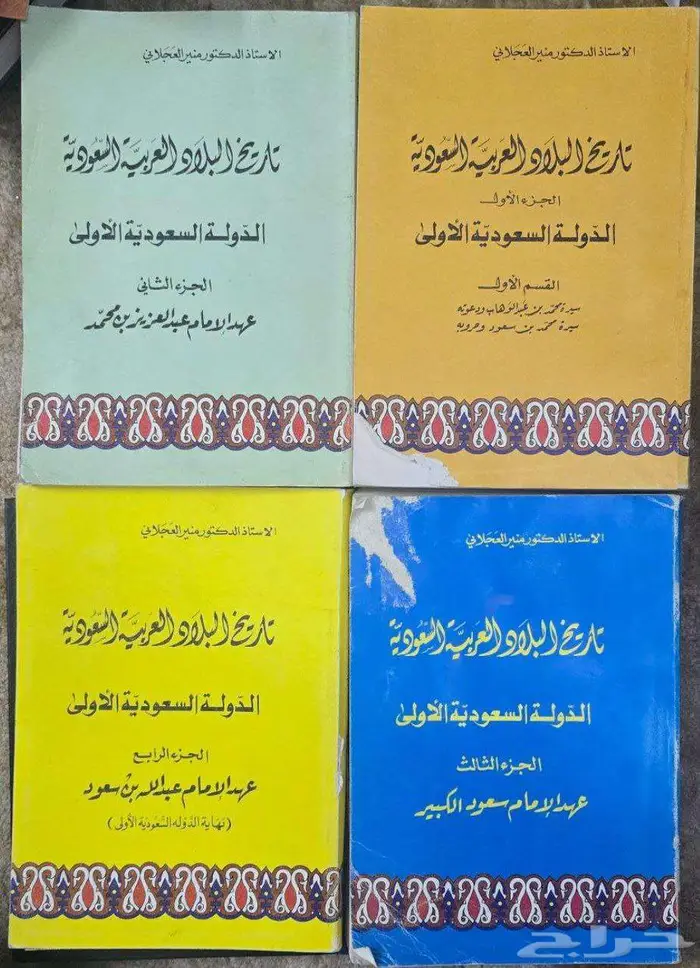 الاستاذ الدكتور منير العجلاني
تاريخ البلاد العربية السعودية
الجزء الأول
الدولة السعودية الأولى
القسم الأول
سيرة محمد بن عبد الوهاب ودعوته
سيرة محمد بن سعود وحروبه
الاستاذ الدكتور منير العجلاني
تاريخ البلاد العربية السعودية
الدولة السعودية الأولى
الجزء الثاني
عهد الامام عبد العزيز بن محمد
الاستاذ الدكتور منير العجلاني
تاريخ البلاد العربية السعودية
الدولة السعودية الأولى
الجزء الثالث
عهد الامام سعود الكبير
الاستاذ الدكتور منير العجلاني
تاريخ البلاد العربية السعودية
الدولة السعودية الأولى
الجزء الرابع
عهد الامام عبد الله بن سعود
(نهاية الدوله السعودية الأولى)
حراج